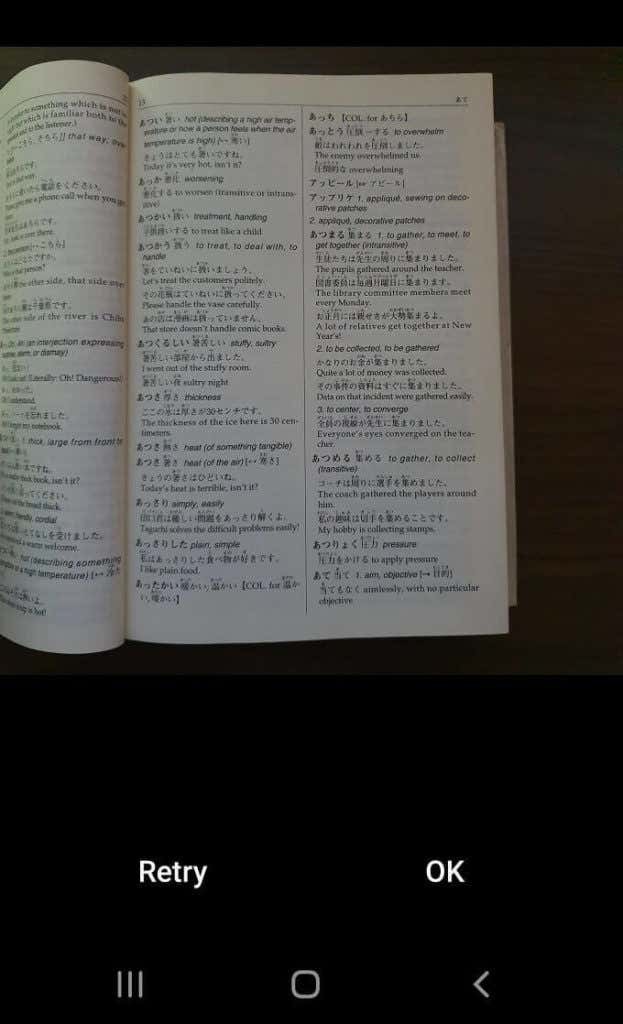 to something which is not
which is familiar both to the
and to the listener.)
that way, over
over there.
電話をください。
a phone call when you
the other side, that side
side of the river is Chiba
(an interjection expressing
alarm, or dismay)
(Literally: Oh! Dangerous!)
understand.
ノートを忘れました。
forgot my notebook.
1. thick, large from front to
book, isn't it?
the bread thick.
friendly, cordial
受けました。
a warm welcome.
hot (describing something
a high temperature)
soup is hot!
13
あつい 暑い hot (describing a high air temp-
erature or how a person feels when the air
temperature is high) [↔ 寒い]
きょうはとても暑いですね。
Today it's very hot, isn't it?
あっか 悪化 worsening
悪化する to worsen (transitive or intrans-
itive)
あつかい 扱い treatment, handling
子供扱いする to treat like a child
あつかう 扱う to treat, to deal with, to
handle
客をていねいに扱いましょう。
Let's treat the customers politely.
その花瓶はていねいに扱ってください。
Please handle the vase carefully.
あの店は漫画は扱っていません。
That store doesn't handle comic books.
あつくるしい 暑苦しい stuffy, sultry
暑苦しい部屋から出ました。
I went out of the stuffy room.
暑苦しい夜 sultry night
あつさ 厚さ thickness
ここの氷は厚さが30センチです。
The thickness of the ice here is 30 cen-
timeters.
あつさ 熱さ heat (of something tangible)
あつさ 暑さ heat (of the air) [↔ 寒さ]
きょうの暑さはひどいね。
Today's heat is terrible, isn't it?
あっさり simply, easily
田口君は難しい問題をあっさり解くよ。
Taguchi solves the difficult problems easily!
あっさりした plain, simple
私はあっさりした食べ物が好きです。
I like plain food.
あったかい 暖かい, 温かい 【COL. for 温か
い, 暖かい】
あて
あっち 【COL. for あちら】
あっとう 圧倒 ~する to overwhelm
敵はわれわれを圧倒しました。
The enemy overwhelmed us.
圧倒的な overwhelming
アッピール [☞ アピール]
アップリケ 1. appliqué, sewing on deco-
rative patches
2. appliqué, decorative patches
あつまる 集まる 1. to gather, to meet, to
get together (intransitive)
生徒たちは先生の周りに集まりました。
The pupils gathered around the teacher.
図書委員は毎週月曜日に集まります。
The library committee members meet
every Monday.
お正月には親せきが大勢集まるよ。
A lot of relatives get together at New
Year's!
2. to be collected, to be gathered
かなりのお金が集まりました。
Quite a lot of money was collected.
その事件の資料はすぐに集まりました。
Data on that incident were gathered easily.
3. to center, to converge
全員の視線が先生に集まりました。
Everyone's eyes converged on the tea-
cher.
あつめる 集める to gather, to collect
(transitive)
コーチは周りに選手を集めました。
The coach gathered the players around
him.
私の趣味は切手を集めることです。
My hobby is collecting stamps.
あつりょく 圧力 pressure
圧力をかける to apply pressure
あて 当て 1. aim, objective [→ 目的]
当てもなく aimlessly, with no particular
objective
Retry
OK